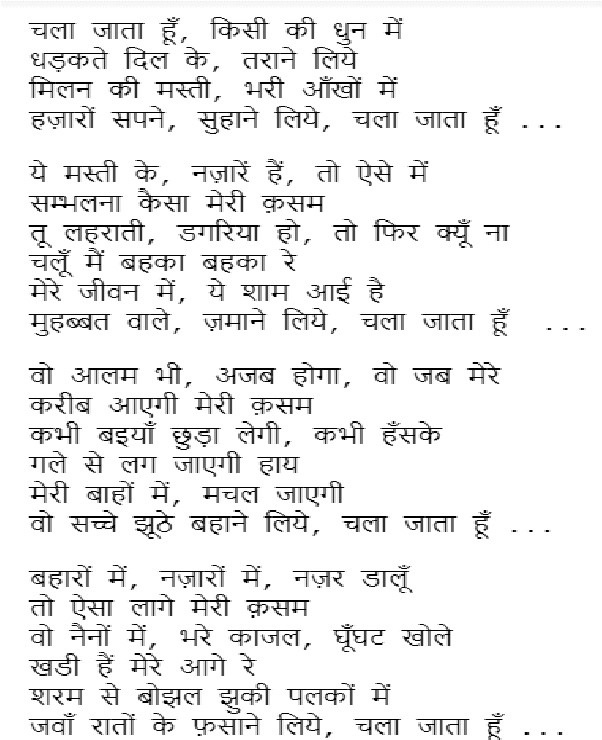 चला जाता हूँ, किसी की धुन में
धड़कते दिल के, तराने लिये
मिलन की मस्ती, भरी आँखों में
हज़ारों सपने, सुहाने लिये, चला जाता हूँ ...
ये मस्ती के, नज़ारें हैं, तो ऐसे में
सम्भलना कैसा मेरी क़सम
तू लहराती, डगरिया हो, तो फिर क्यूँ ना
चलूँ मैं बहका बहका रे
मेरे जीवन में, ये शाम आई है
मुहब्बत वाले, ज़माने लिये, चला जाता हूँ ...
वो आलम भी, अजब होगा, वो जब मेरे
करीब आएगी मेरी क़सम
कभी बइयाँ छुड़ा लेगी, कभी हँसके
गले से लग जाएगी हाय
मेरी बाहों में, मचल जाएगी
वो सच्चे झूठे बहाने लिये, चला जाता हूँ ...
बहारों में, नज़ारों में, नज़र डालूँ
तो ऐसा लागे मेरी क़सम
वो नैनों में, भरे काजल, घूँघट खोले
खडी हैं मेरे आगे रे
शरम से बोझल झुकी पलकों में
जवाँ रातों के फ़साने लिये, चला जाता हूँ ...